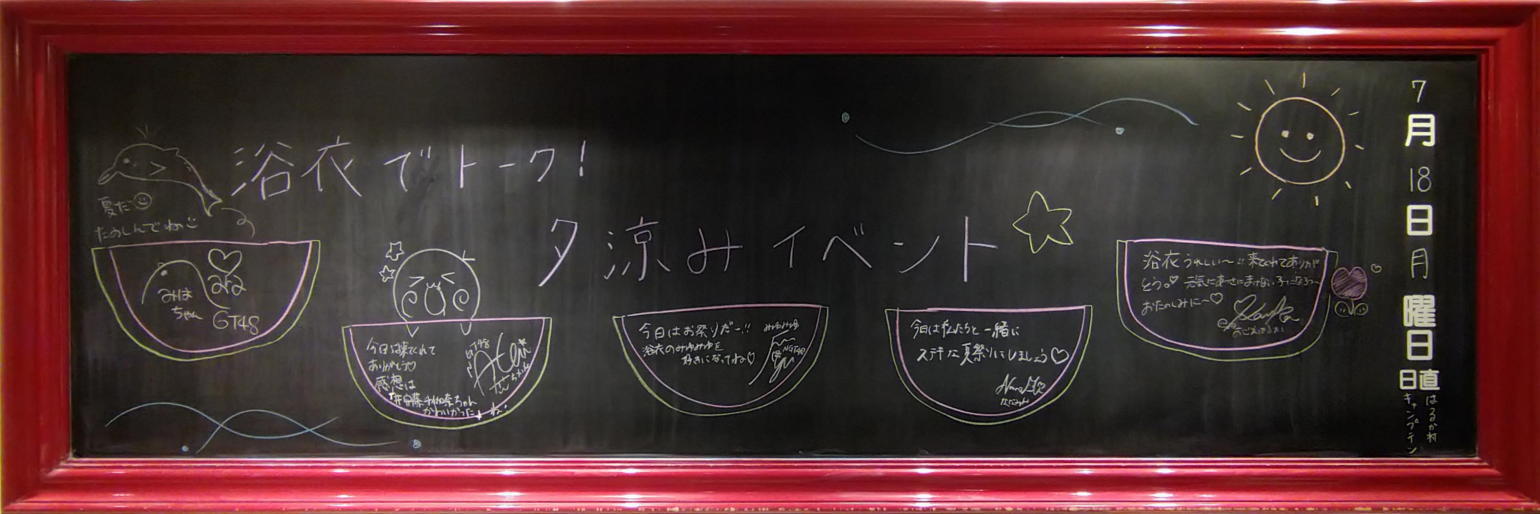 浴衣でトーク!
夕涼みイベント
夏だ
たのしんでね
みは
ちゃん
GT48
今日は来てくれて
ありがとう♡
感想は
かわいかった
ね。
今日はお祭りだー!!
浴衣のみゆみゆを
好きになってね♡
NGT48
今日は私たちと一緒に
ステキな夏祭りにしましょう♡
浴衣うれしい〜!!来てくれてありが
とう。
おたのしみに〜♡
7
月
18
日
月
曜
日
日直
はるか村
キャンプテン